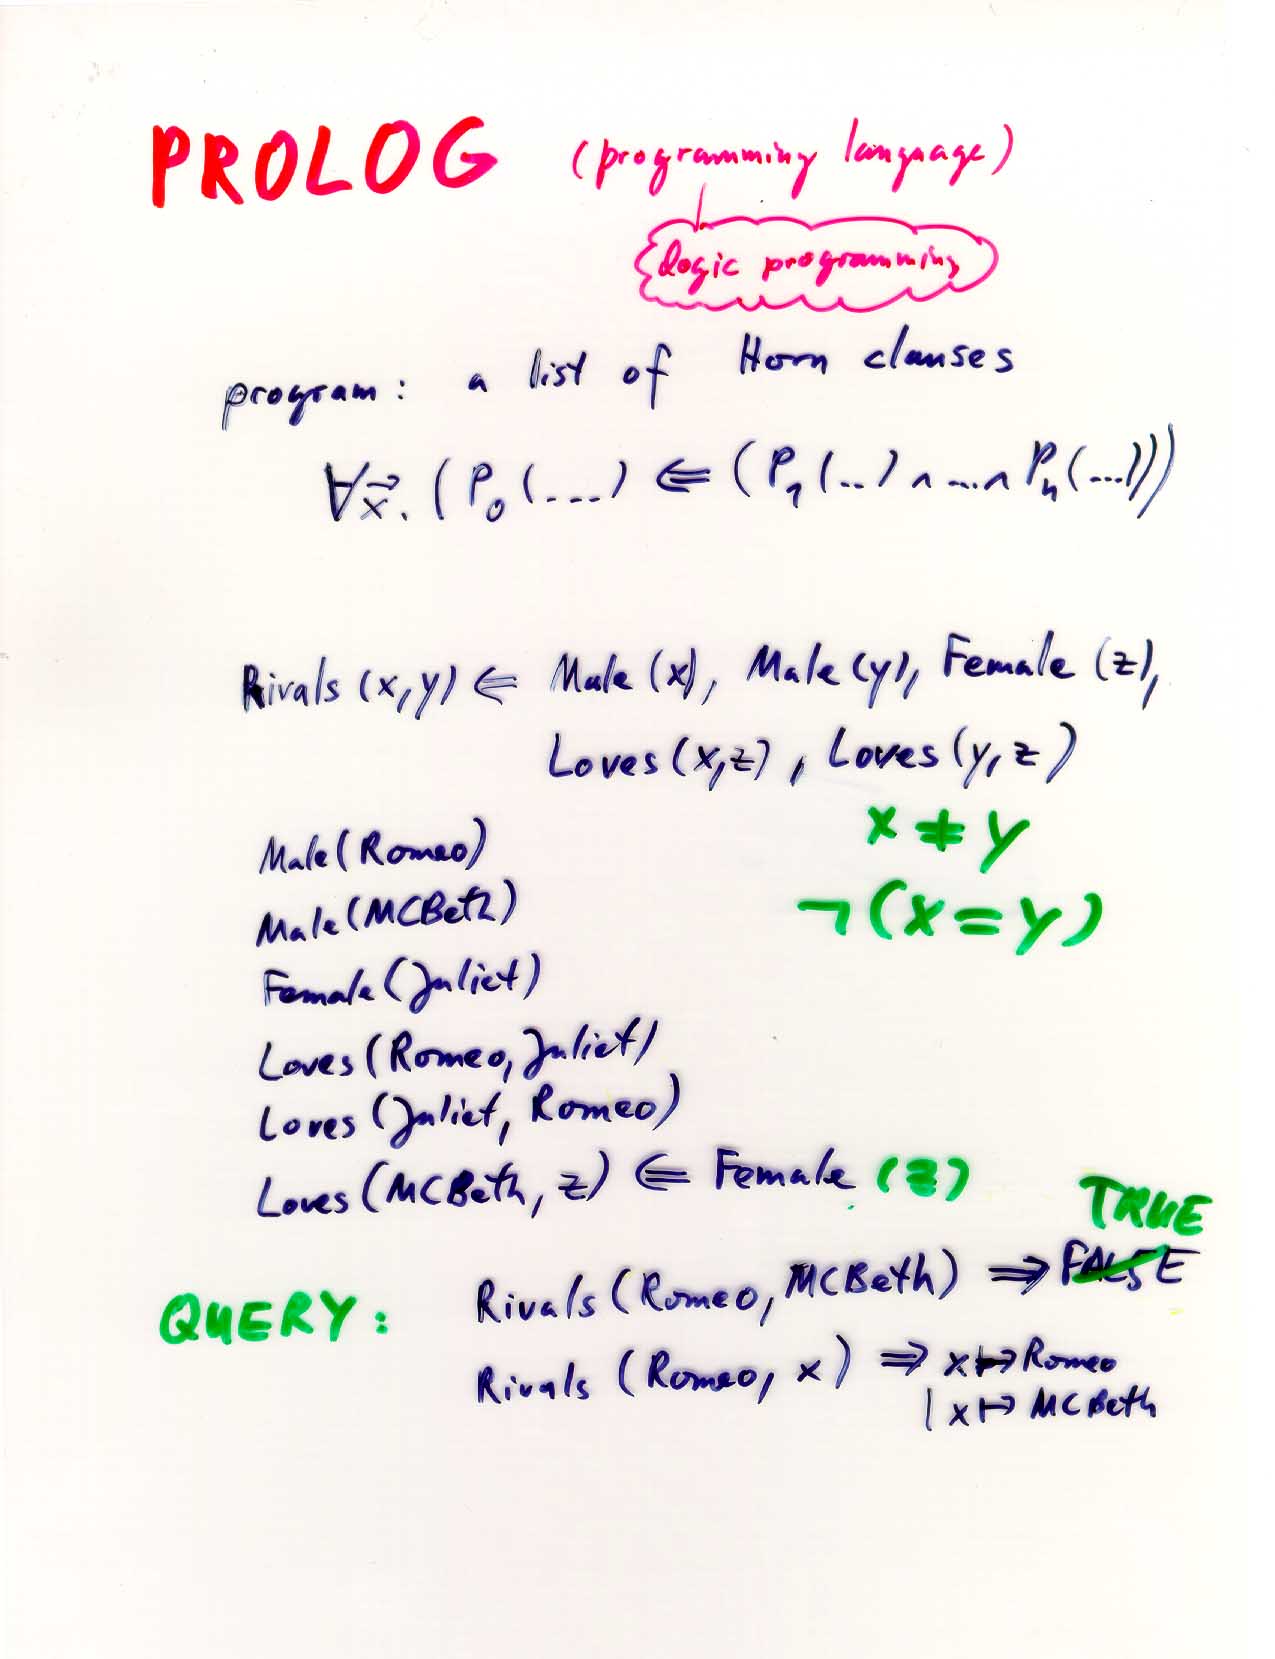 PROLOG (programming language)
logic programming
program: a list of Horn clauses
∀x⃗. (P₀(....) ⇐ (P₁(..) ∧ ... ∧ Pₙ(...)))
Rivals (x,y) ⇐ Male (x), Male (y), Female (z),
Loves (x,z), Loves (y,z)
x ≠ y
Male (Romeo)
¬(x = y)
Male (MCBeth)
Female (Juliet)
Loves (Romeo, Juliet)
Loves (Juliet, Romeo)
Loves (MCBeth, z) ⇐ Female (z)
TRUE
QUERY: Rivals (Romeo, MCBeth) ⇒ FALSE
Rivals (Romeo, x) ⇒ x ↦ Romeo
| x ↦ MCBeth